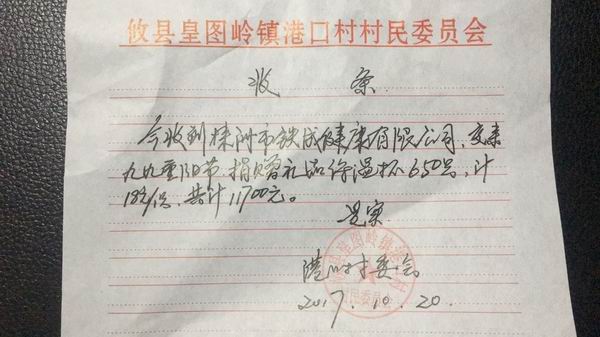 攸县皇图岭镇港口村村民委员会
收 条
今收到株洲市铁成健康有限公司,交来
九九重阳节捐赠礼品保温杯650只,计
共计11700元。
是实
港口村委会
2017.10.20.